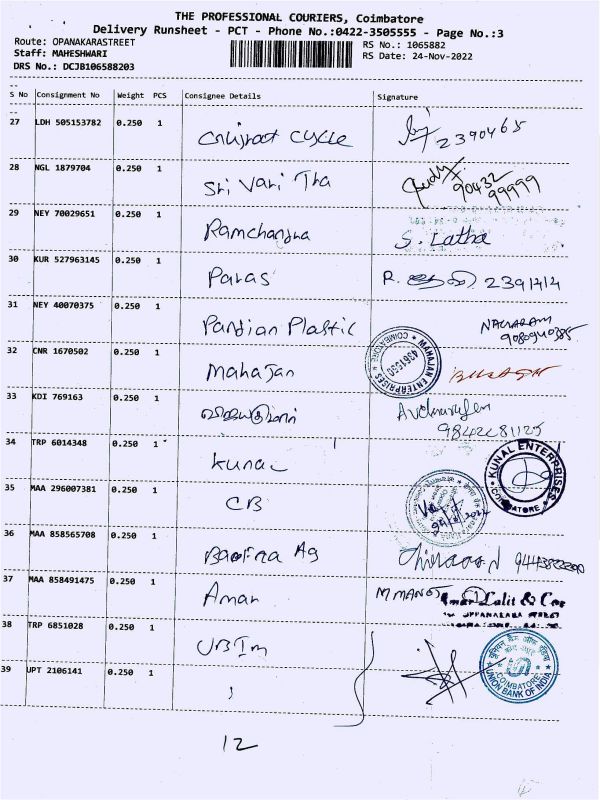 THE PROFESSIONAL COURIERS, Coimbatore
Delivery Runsheet - PCT - Phone No.:0422-3505555 - Page No.:3
Route: OPANAKARASTREET RS No.: 1065882
Staff: MAHESHWARI RS Date: 24-Nov-2022
DRS No.: DCJB106588203
S No Consignment No Weight PCS Consignee Details Signature
27 LDH 505153782 0.250 1 Cycle 2390465
28 NGL 1879704 0.250 1 Sri Vari Tha 90432
99999
29 NEY 70029651 0.250 1 Ramchandra S. Latha
30 KUR 527963145 0.250 1 Paras R. 2391414
31 NEY 40070375 0.250 1 Pandian Plastic
32 CNR 1670502 0.250 1 Mahajan MAHAJAN ENTERPRISES COIMBATORE 4361550
33 KDI 769163 0.250 1
34 TRP 6014348 0.250 1 Kunal KUNAL ENTERPRISES COIMBATORE
35 MAA 296007381 0.250 1 CB
36 MAA 858565708 0.250 1 Ag
37 MAA 858491475 0.250 1 Aman Lalit & Co
38 TRP 6851028 0.250 1 UBIm
39 UPT 2106141 0.250 1 COIMBATORE UNION BANK OF INDIA
12